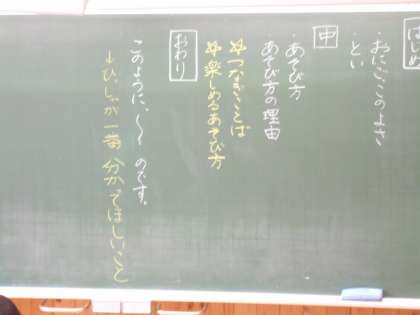 はじめ
・おにごっこのよさ
・とい
中
・あそび方
あそび方の理由
つなぎことば
楽しめるあそび方
おわり
このように、〜〜のです。
↓ひっしゃが一番分かってほしいこと